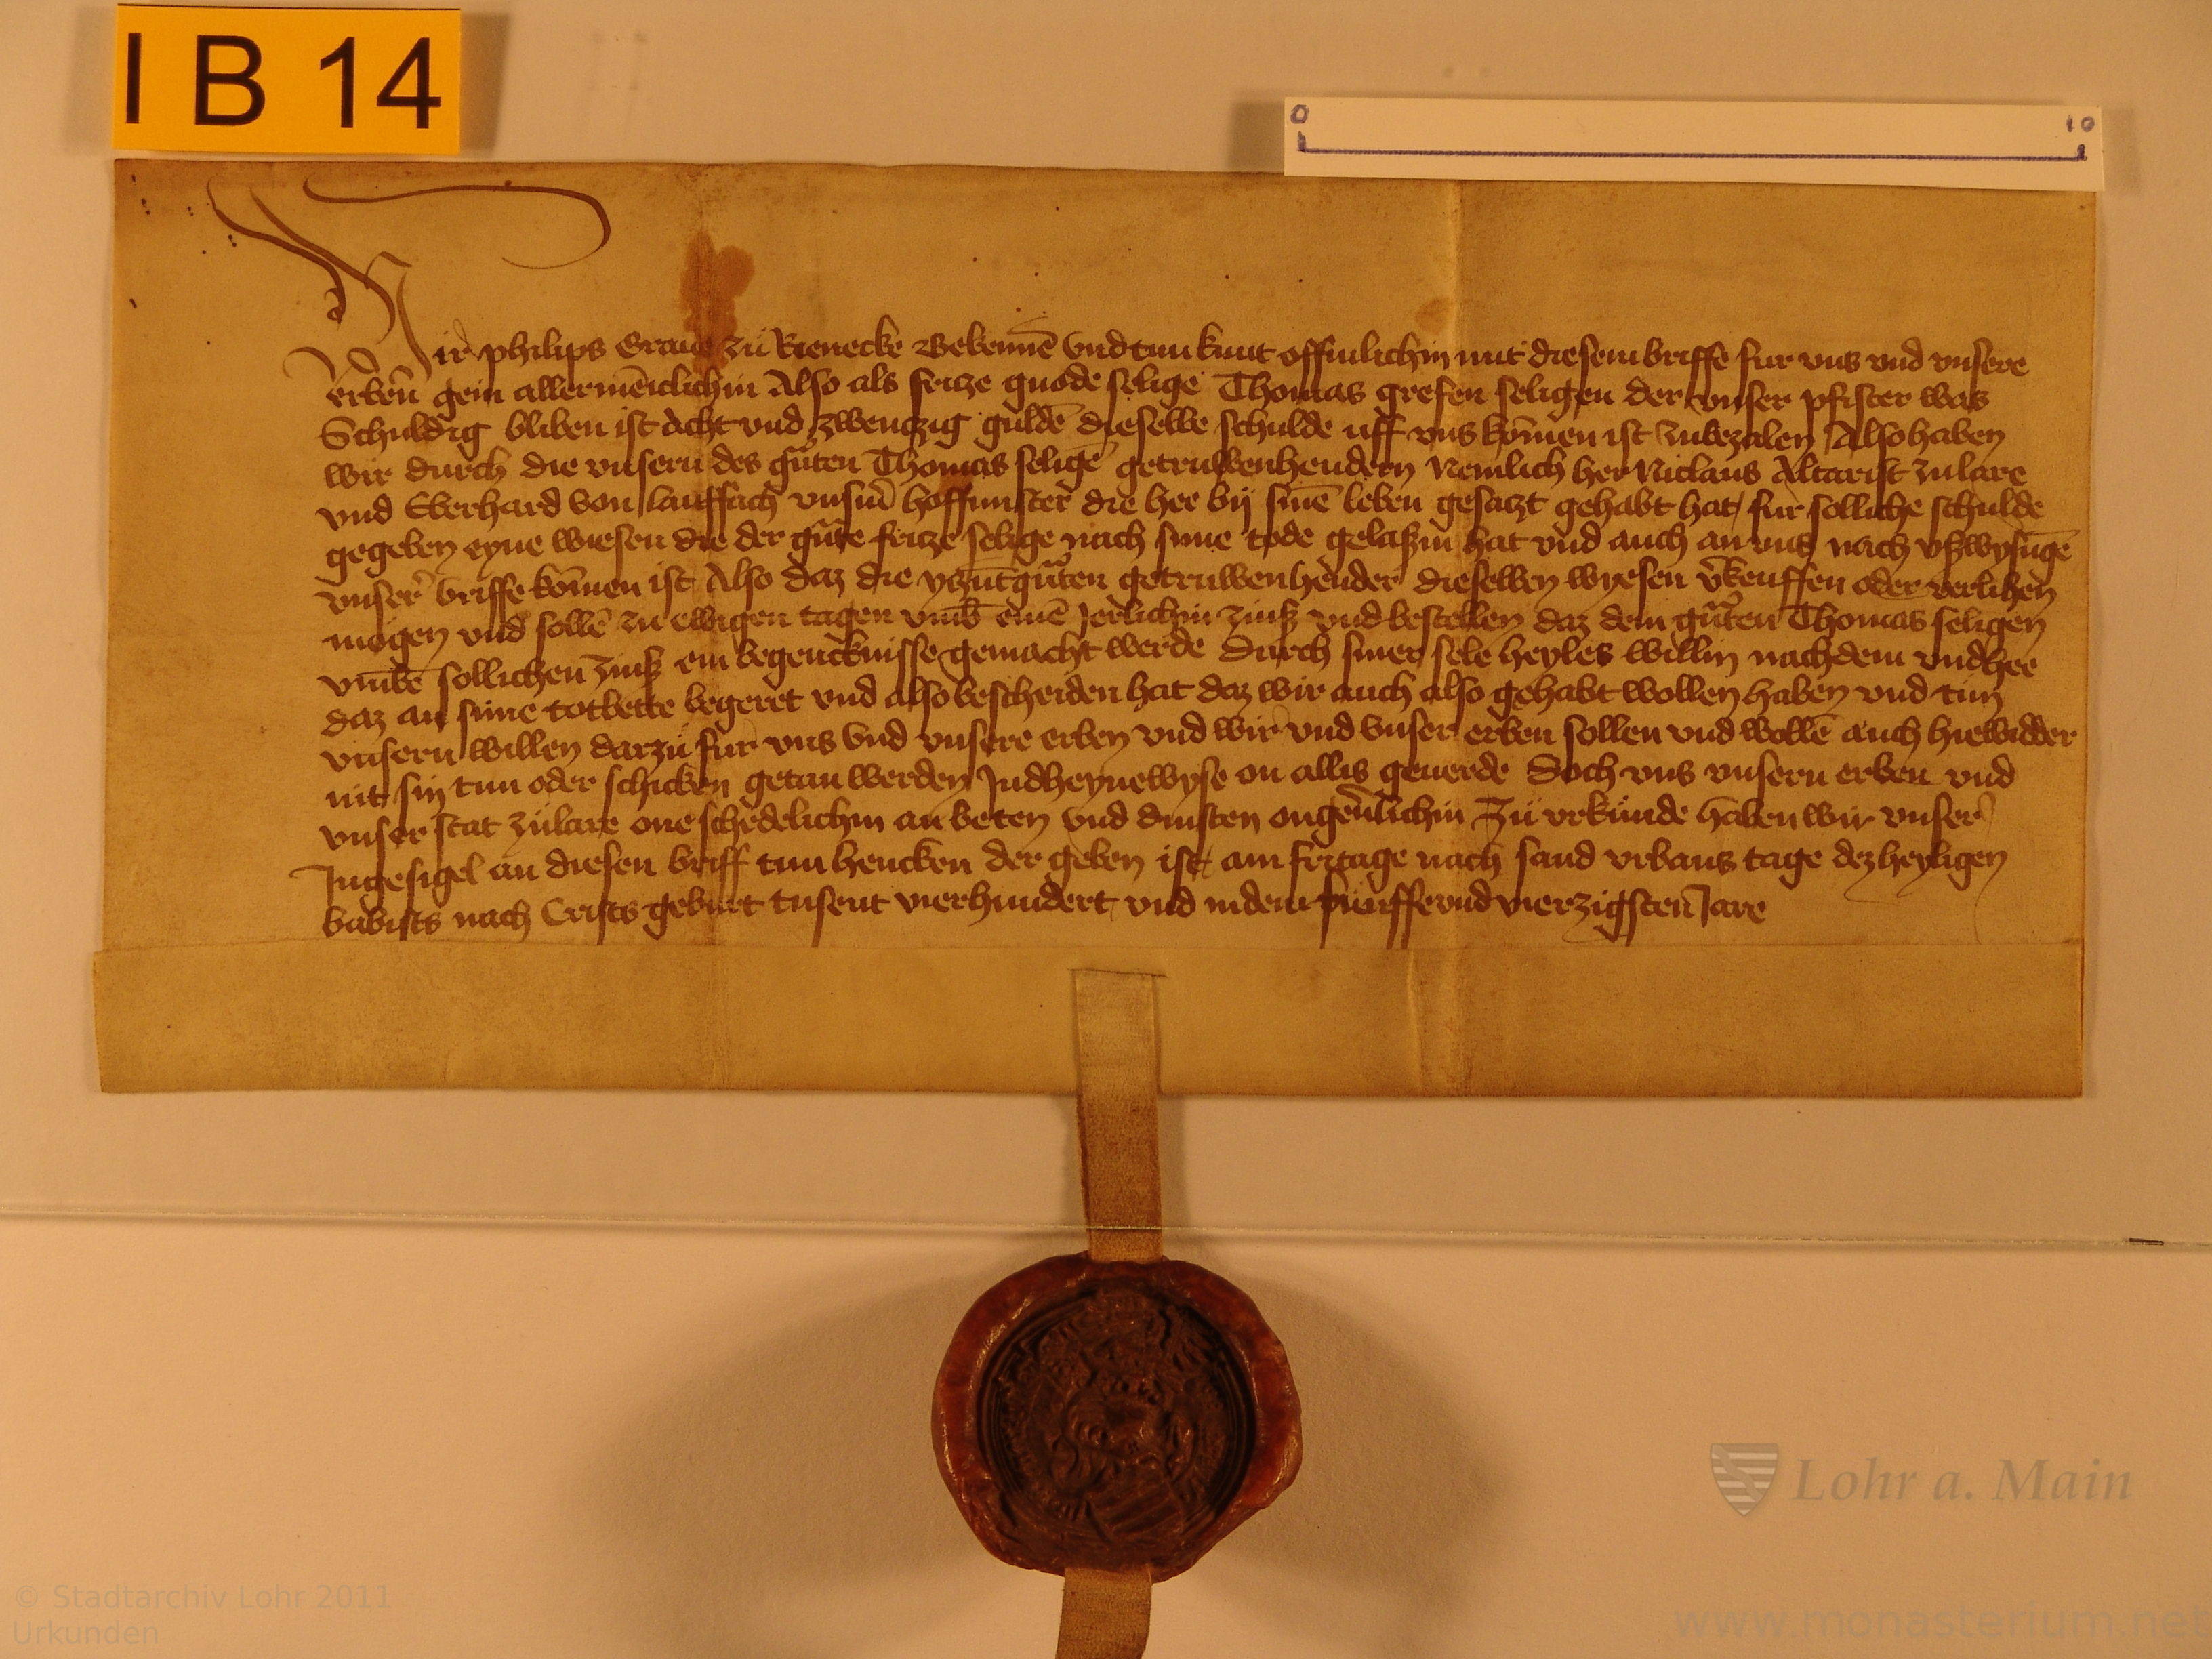 I B 14
0 10
Wir philips Graue zu Rienecke Bekennē vnd tun kunt offinlichin mit diesem briffe fur vns vnd vnsere
erbeñ gein allermēiclichin Also als fritze quode selige Thomas grefen seligen der vnser pfister was
Schuldig bliben ist acht vnd zwenczig guldē dieselbe schulde uff vns kōmen ist zubezalen Also haben
wir durch die vnsern des guten Thomas selige getruwenhendern Nemlich her Niclaus Altarist zulare
vnd Eberhard von lauffach vnsm̄ hoffmister die her bij sinē leben gesatzt gehabt hat fur solliche schulde
gegeben eyne wiesen die der gute fritze selige nach sime tode gelaßin hat vnd auch an vns nach vßwysūge
vnser briffe kōmen ist Also daz die ytzūtgūten getruwenhender dieselben wyesen v̄keuffen oder verlihen
mogen vnd sollē zu ewigen tagen vmb einē Jerlichin zinß vnd bestellen daz dem guten Thomas seligen
vmbe sollichen zinß ein begencknisse gemacht werde durch siner sele heyles willin nachdem vnd her
daz an sime totbette begeret vnd also bescheiden hat daz wir auch also gehabt wollen haben vnd tun
vnsern willen darzu fur vns vnd vnsere erben vnd wir vnd vnser erben sollen vnd wollē auch hiewidder
nit sin tun oder schicken getan werden Jndheynewyse on allis geuerde Doch vns vnsern erben vnd
vnser stat zulare one schedelichin an beten vnd dinsten ongeūlichin Zu vrkunde haben wir vnser
Jngesigel an diesen briff tun hencken der geben ist am fritage nach sand vrbans tage dez heyligen
babists nach Crists geburt tusent vierhundert vnd in dem funffevnd vierzigsten Jare
Lohr a. Main
© Stadtarchiv Lohr 2011
Urkunden
www.monasterium.net